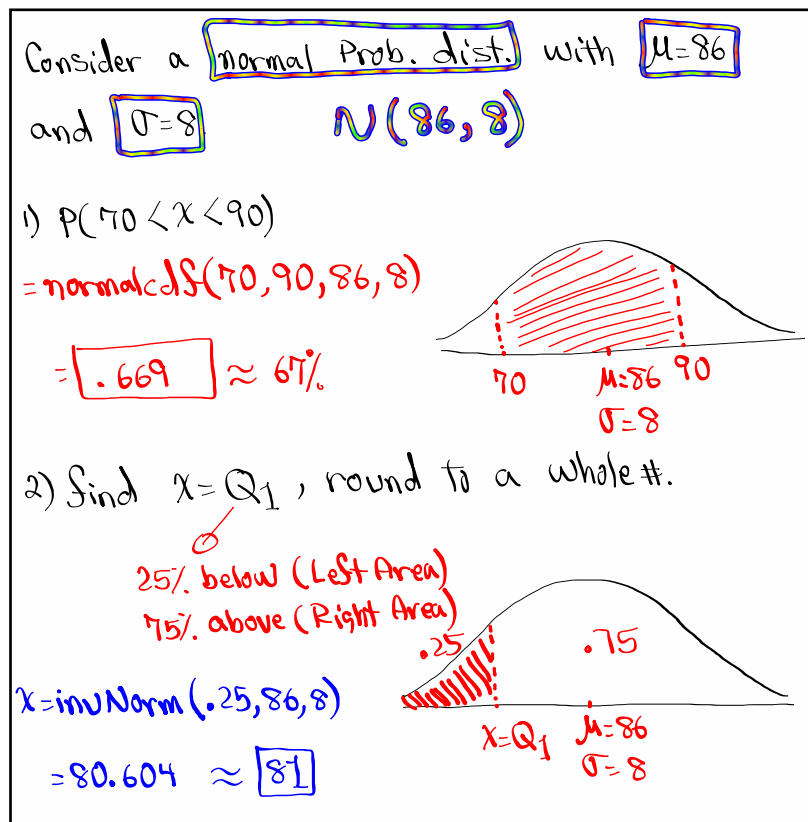 Consider a normal Prob. dist. with μ=86
and σ=8 N(86,8)
1) P(70 < x < 90)
=normalcdf(70,90,86,8)
= .669 ≈ 67%
70 μ=86 90
σ=8
2) find x=Q1, round to a whole #.
25% below (Left Area)
75% above (Right Area)
.25 .75
x=invNorm(.25,86,8)
x=Q1 μ=86
σ=8
=80.604 ≈ 81